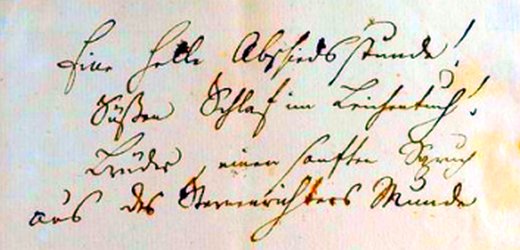 Eine helle Abschiedsstunde!
Süßen Schlaf im Leichentuch!
Brüder, einen sanften Spruch
aus des Sternenrichters Munde